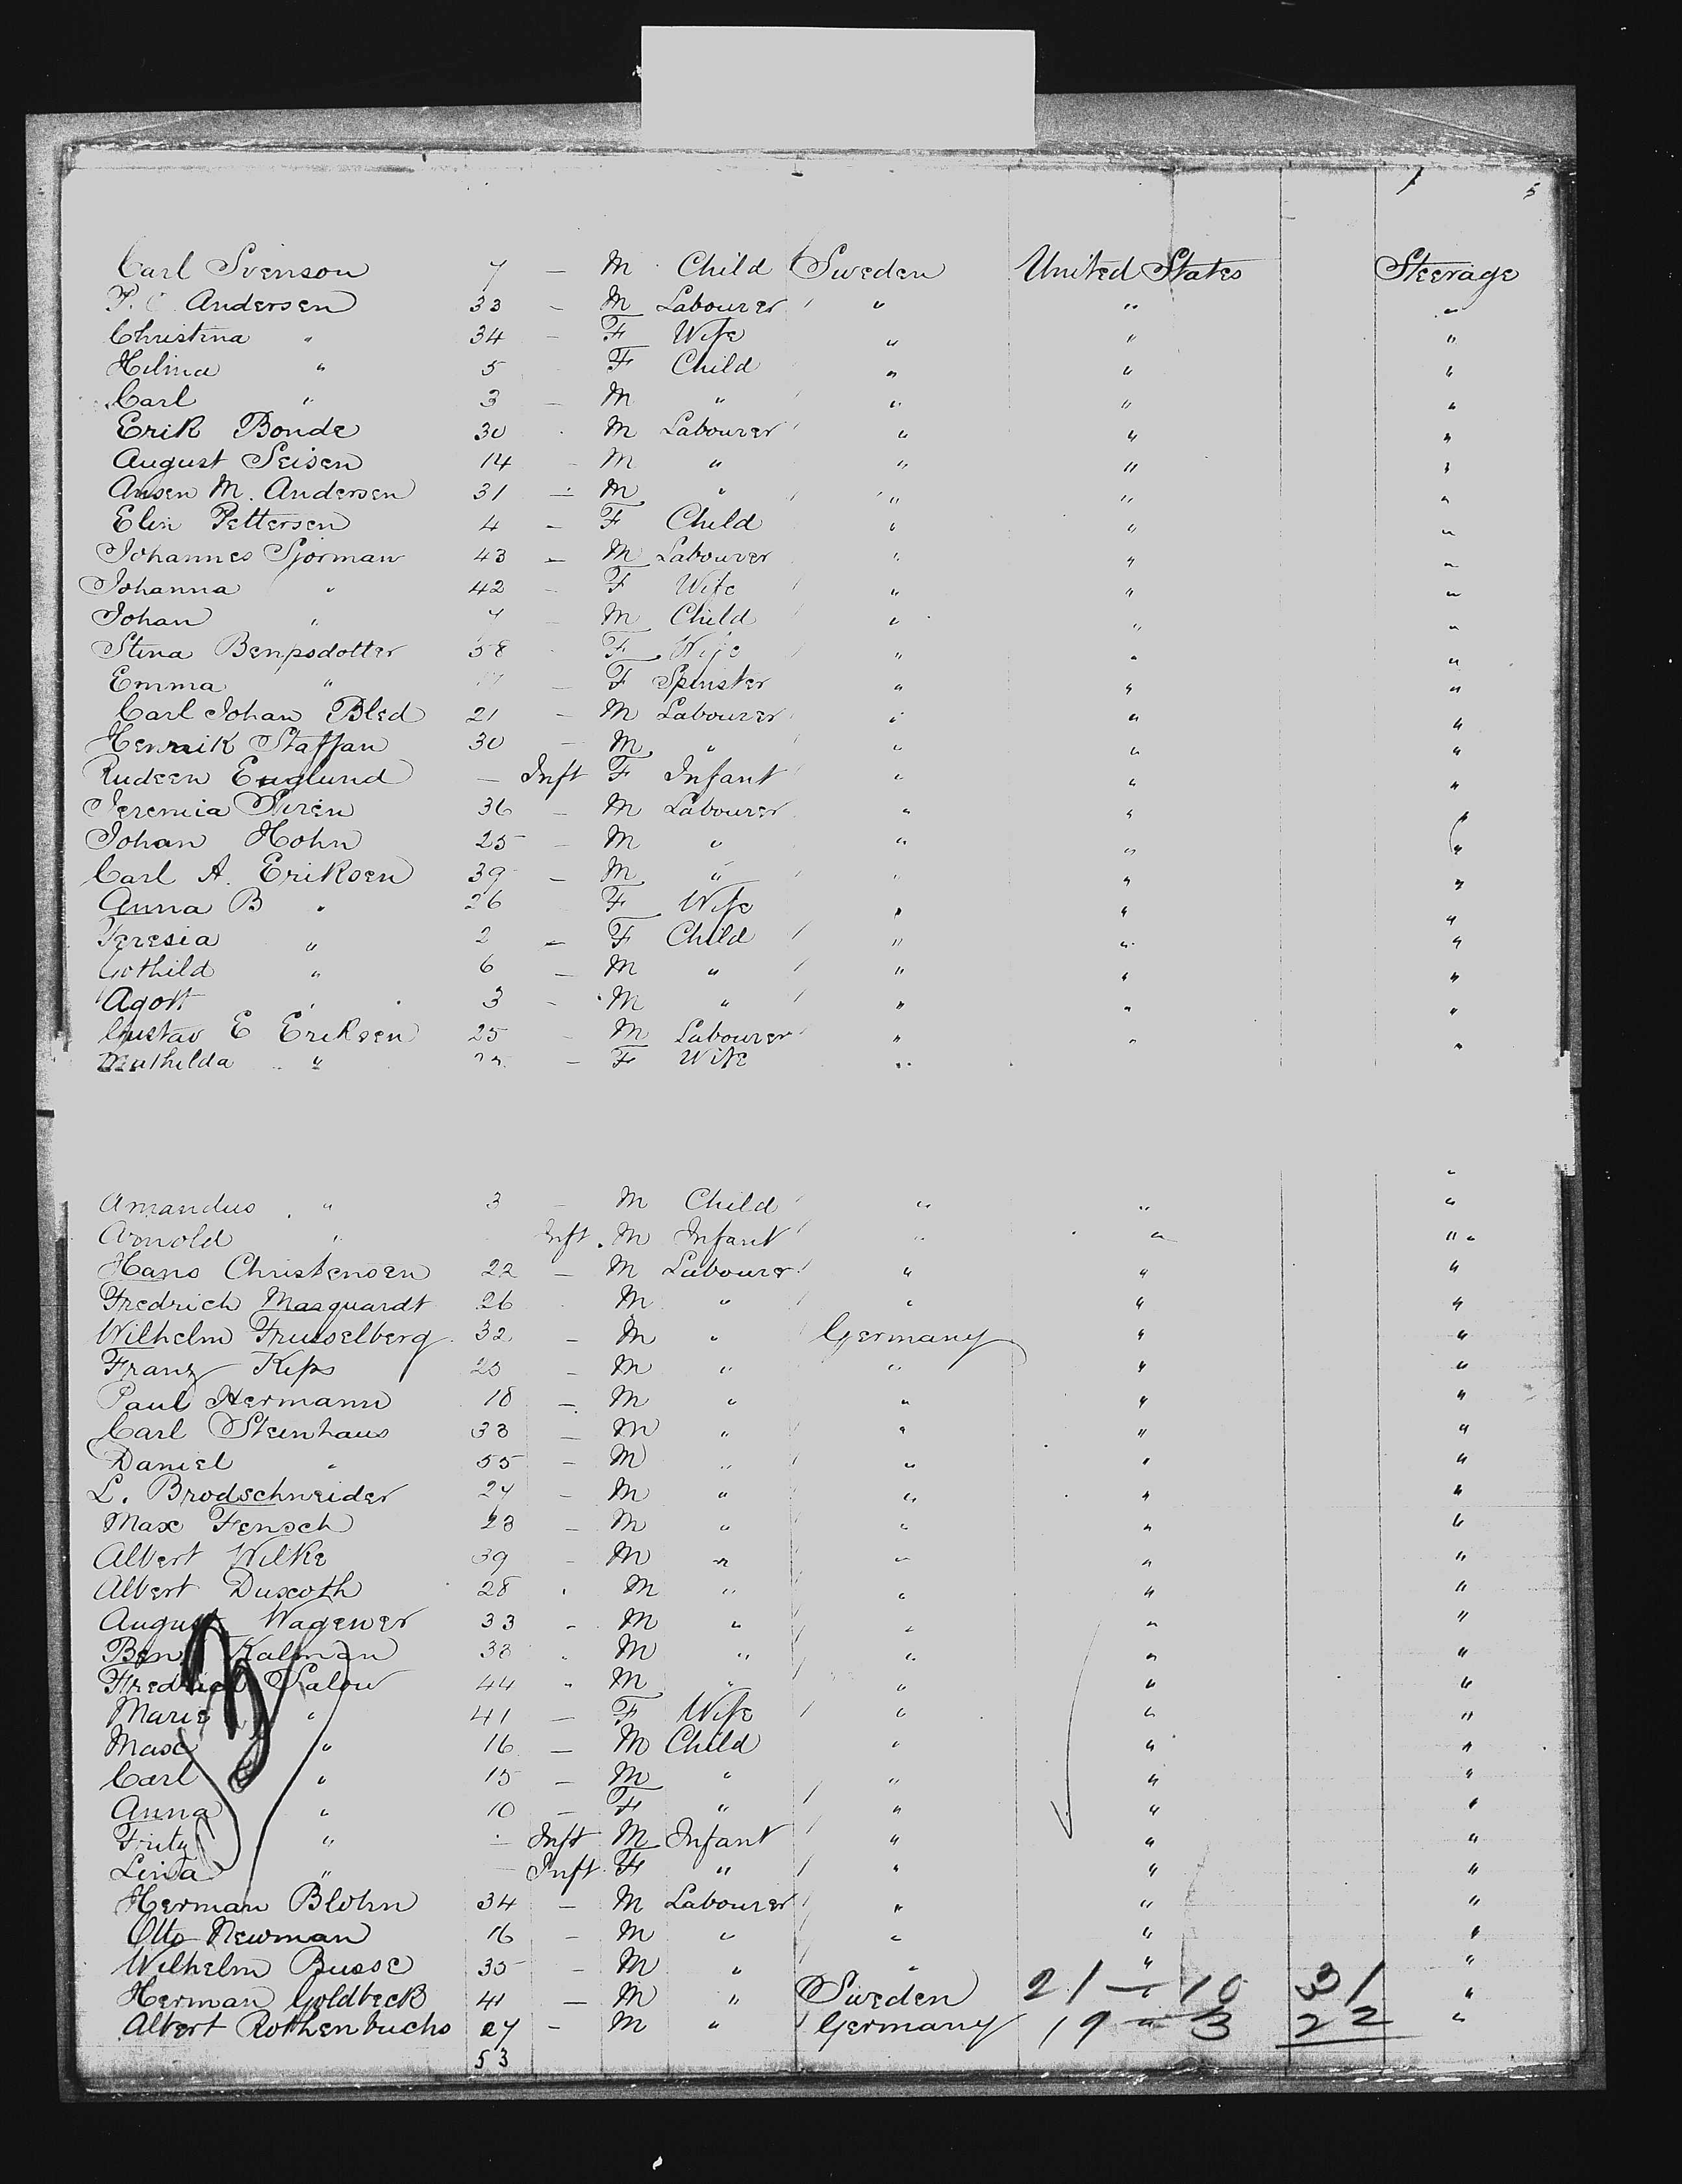 Carl Svenson 7 — M Child Sweden United States Steerage
P. C. Andersen 33 — M Labourer " " "
Christina " 34 — F Wife " " "
Hilma " 5 F Child " " "
Carl " 3 — M " " " "
Erik Bonde 30 M Labourer " " "
August Seisen 14 — M " " " "
Ansen M. Andersen 31 — M " " " "
Elin Pettersen 4 — F Child " " "
Johannes Sjorman 43 — M Labourer " " "
Johanna " 42 — F Wife " " "
Johan " 7 — M Child " " "
Stina Bengsdotter 58 F Wife " " "
Emma " — F Spinster " " "
Carl Johan Bled 21 — M Labourer " " "
Henrik Staffan 30 — M " " " "
Rudeen Englund — Inft F Infant " " "
Jeremia Siren 36 — M Labourer " " "
Johan Hohn 25 — M " " " "
Carl A. Eriksen 39 — M " " " "
Anna B " 26 F Wife " " "
Teresia " 2 — F Child " " "
Gothild " 6 — M " " " "
Agott " 3 — M " " " "
Gustav E Eriksen 25 M Labourer " " "
Mathilda " — F Wife "
"
Amandus " 3 — M Child " " "
Arnold " Inft. M Infant " " "
Hans Christensen 22 — M Labourer " " "
Fredrich Masquardt 26 M " " " "
Wilhelm Frusselberg 32 — M " Germany " "
Franz Kips 23 — M " " " "
Paul Hermann 18 — M " " " "
Carl Steinhaus 33 — M " " " "
Daniel " 55 — M " " " "
L. Brodschneider 27 — M " " " "
Max Fensch 23 — M " " " "
Albert Wilke 39 — M " " " "
Albert Duxoth 28 M " " " "
August Wagener 33 — M " " " "
Kalman 38 M " " " "
Fredrich Salow 44 — M " " " "
Marie " 41 — F Wife " " "
Max " 16 — M Child " " "
Carl " 15 — M " " " "
Anna " 10 — F " " " "
Fritz " — Inft M Infant " " "
Lina " — Inft. F " " " "
Herman Blohn 34 — M Labourer " " "
Otto Newman 16 — M " " " "
Wilhelm Busse 35 — M " " " "
Herman Goldbeck 41 — M " Sweden 21 — 10 31 "
Albert Rothenbuchs 27 — M " Germany 19 — 3 22 "
53